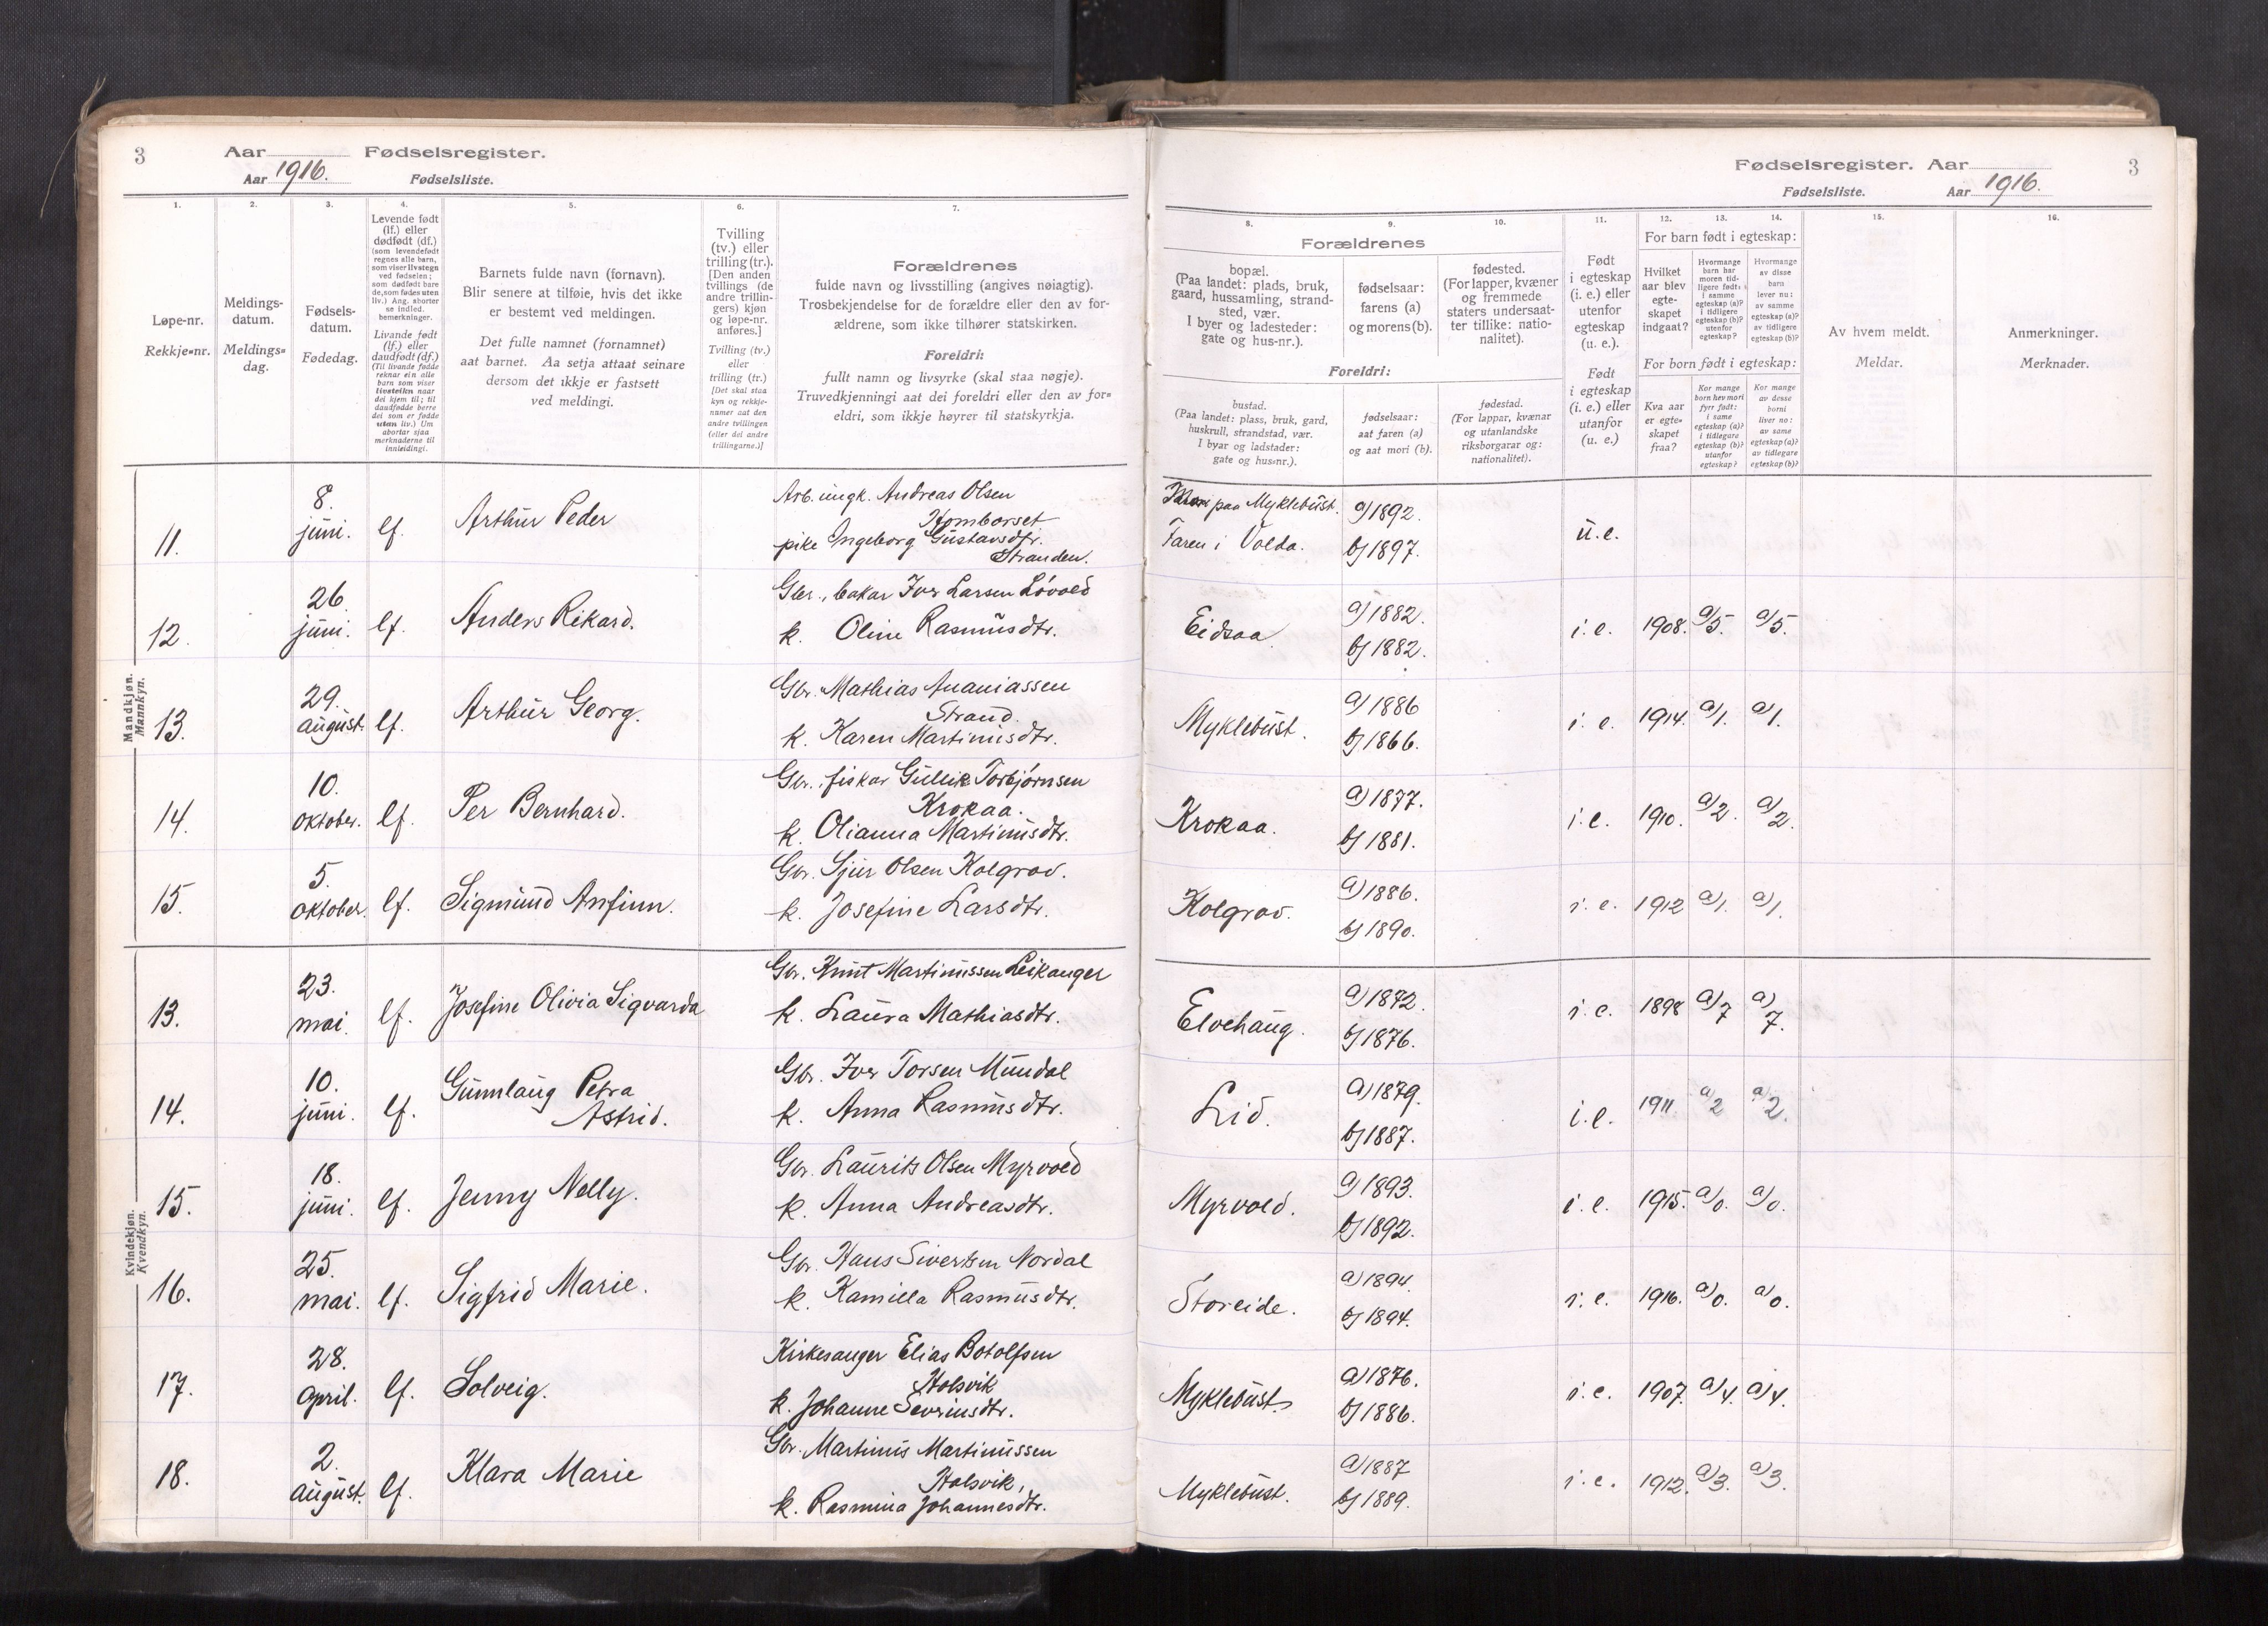 3 Aar Fødselsregister.
Aar 1916. Fødselsliste.
1. 2. 3. 4. 5. 6. 7.
Løpe-nr.
Rekkje-nr.
Meldings-
datum.
Meldings-
dag.
Fødsels-
datum.
Fødedag.
Levende født
(lf.) eller
dødfødt (df.)
(som levendefødt
regnes alle barn,
som viser livstegn
ved fødselen;
som dødfødt bare
de, som fødes uten
liv.) Ang. aborter
se indled.
bemerkninger.
Livande født
(lf.) eller
daudfødt (df.)
(Til livande fødde
reknar ein alle
barn som viser
livsteikn naar
dei kjem til; til
daudfødde berre
dei som er fødde
utan liv.) Um
abortar sjaa
merknaderne til
innleidingi.
Barnets fulde navn (fornavn).
Blir senere at tilføie, hvis det ikke
er bestemt ved meldingen.
Det fulle namnet (fornamnet)
aat barnet. Aa setja attaat seinare
dersom det ikkje er fastsett
ved meldingi.
Tvilling
(tv.) eller
trilling (tr.).
[Den anden
tvillings (de
andre trillin-
gers) kjøn
og løpe-nr.
anføres.]
Tvilling (tv.)
eller
trilling (tr.)
[Det skal staa
kyn og rekkje-
numer aat den
andre tvillingen
(eller dei andre
trillingarne.)]
Forældrenes
fulde navn og livsstilling (angives nøiagtig).
Trosbekjendelse for de forældre eller den av for-
ældrene, som ikke tilhører statskirken.
Foreldri:
fullt namn og livsyrke (skal staa nøgje).
Truvedkjenningi aat dei foreldri eller den av for-
eldri, som ikkje høyrer til statskyrkja.
Mandkjøn.
Mannkyn.
11. 8. juni. lf. Arthur Peder
Arb. ungk. Andreas Olsen
Homborset
pike Ingeborg Gustavsdtr.
Stranden.
12. 26. juni. lf. Anders Rikard.
Gbr., bakar Iver Larsen Løvold
k. Oline Rasmusdtr.
13. 29. august. lf. Arthur Georg.
Gbr. Mathias Ananiassen
Strand.
k. Karen Martinusdtr.
14. 10. oktober. lf. Per Bernhard.
Gbr. fiskar Gullik Torbjørnsen
Krokaa.
k. Olianna Martinusdtr.
15. 5. oktober. lf. Sigmund Anfinn.
Gbr. Sjur Olsen Kolgrov.
k. Josefine Larsdtr.
Kvindekjøn.
Kvendkyn.
13. 23. mai. lf. Josefine Olivia Sigvarda
Gbr. Knut Martinussen Leikanger
k. Laura Mathiasdtr.
14. 10. juni. lf. Gunnlaug Petra
Astrid.
Gbr. Iver Torsen Mundal
k. Anna Rasmusdtr.
15. 18. juni. lf. Jenny Nelly.
Gbr. Laurits Olsen Myrvold
k. Anna Andreasdtr.
16. 25. mai. lf. Sigfrid Marie.
Gbr. Hans Sivertsen Nordal
k. Kamilla Rasmusdtr.
17. 28. april. lf. Solveig.
Kirkesanger Elias Botolfsen
Holsvik
k. Johanne Sevrinsdtr.
18. 2. august. lf. Klara Marie
Gbr. Martinus Martinussen
Holsvik,
k. Rasmina Johannesdtr.
Fødselsregister. Aar 3
Fødselsliste. Aar 1916.
8. 9. 10. 11. 12. 13. 14. 15. 16.
Forældrenes
bopæl.
(Paa landet: plads, bruk,
gaard, hussamling, strand-
sted, vær.
I byer og ladesteder:
gate og hus-nr.).
fødselsaar:
farens (a)
og morens (b).
fødested.
(For lapper, kvæner
og fremmede
staters undersaat-
ter tillike: natio-
nalitet).
Foreldri:
bustad.
(Paa landet: plass, bruk, gard,
huskrull, strandstad, vær.
I byar og ladstader:
gate og hus-nr.).
fødselsaar:
aat faren (a)
og aat mori (b).
fødestad.
(For lappar, kvænar
og utanlandske
riksborgarar og:
nationalitet).
Født
i egteskap
(i. e.) eller
utenfor
egteskap
(u. e.).
Født
i egteskap
(i. e.) eller
utanfor
(u. e.)
For barn født i egteskap:
Hvilket
aar blev
egte-
skapet
indgaat?
Hvormange
barn har
moren tid-
ligere født:
i samme
egteskap (a)?
i tidligere
egteskap (b)?
utenfor
egteskap?
Hvormange
av disse
barn
lever nu:
av samme
egteskap (a)?
av tidligere
egteskap (b)?
For born født i egteskap:
Kva aar
er egte-
skapet
fraa?
Kor mange
born hev mori
fyrr født:
i same
egteskap (a)?
i tidlegare
egteskap (b)?
utanfor
egteskap?
Kor mange
av desse
borni
liver no:
av same
egteskap (a)?
av tidlegare
egteskap (b)?
Av hvem meldt.
Meldar.
Anmerkninger.
Merknader.
Mori paa Myklebust. a) 1892.
Faren i Volda. b) 1897. u. e.
Eidsaa a) 1882. b) 1882. i. e. 1908. a) 5. a) 5.
Myklebust. a) 1886 b) 1866. i. e. 1914. a) 1. a) 1.
Krokaa. a) 1877. b) 1881. i. e. 1910. a) 2. a) 2.
Kolgrov. a) 1886. b) 1890. i. e. 1912 a) 1. a) 1.
Elvehaug. a) 1872. b) 1876. i. e. 1898 a) 7 a) 7.
Lid. a) 1879. b) 1887. i. e. 1911 a) 2 a) 2.
Myrvold. a) 1893. b) 1892. i. e. 1915. a) 0. a) 0.
Storeide. a) 1894. b) 1894. i. e. 1916. a) 0. a) 0.
Myklebust a) 1876. b) 1886. i. e. 1907. a) 4. a) 4.
Myklebust. a) 1887 b) 1889. i. e. 1912. a) 3. a) 3.